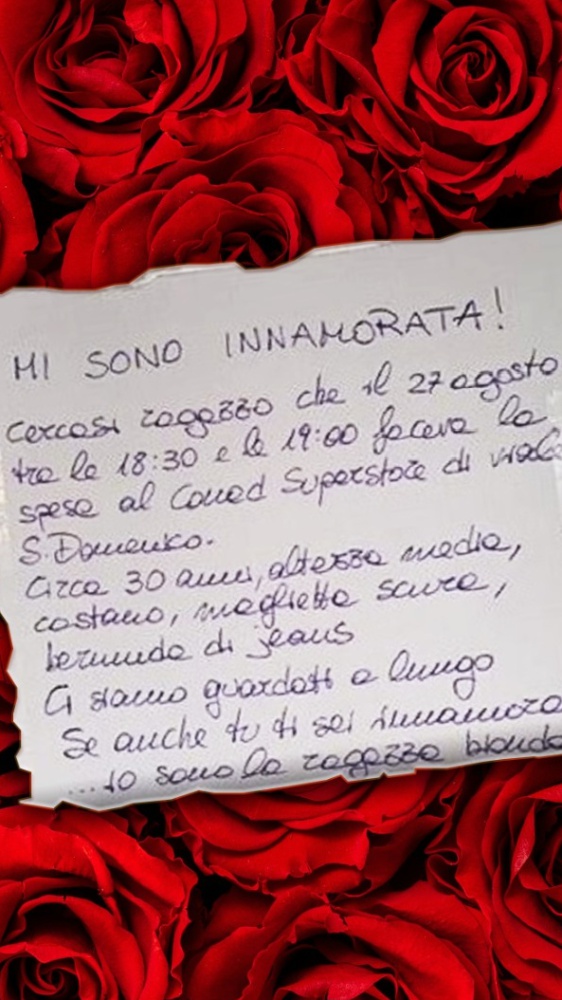 MI SONO INNAMORATA!
Cercasi ragazzo che il 27 agosto
tra le 18:30 e le 19:00 faceva la
spesa al Conad Superstore di viale
S. Domenico.
Circa 30 anni, altezza media,
castano, maglietta scura,
bermuda di jeans
Ci siamo guardati a lungo
Se anche tu ti sei innamora
...io sono la ragazza bionda